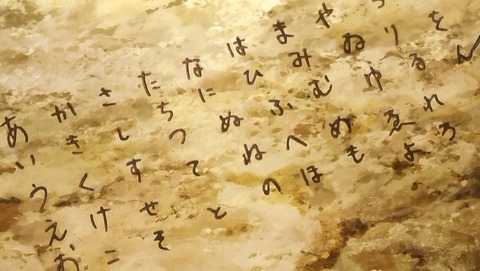 あかさたなはまや
いきしちにひみゐりを
うくすつぬふむゆるん
えけせてねへめゑれ
おこそとのほもよろ